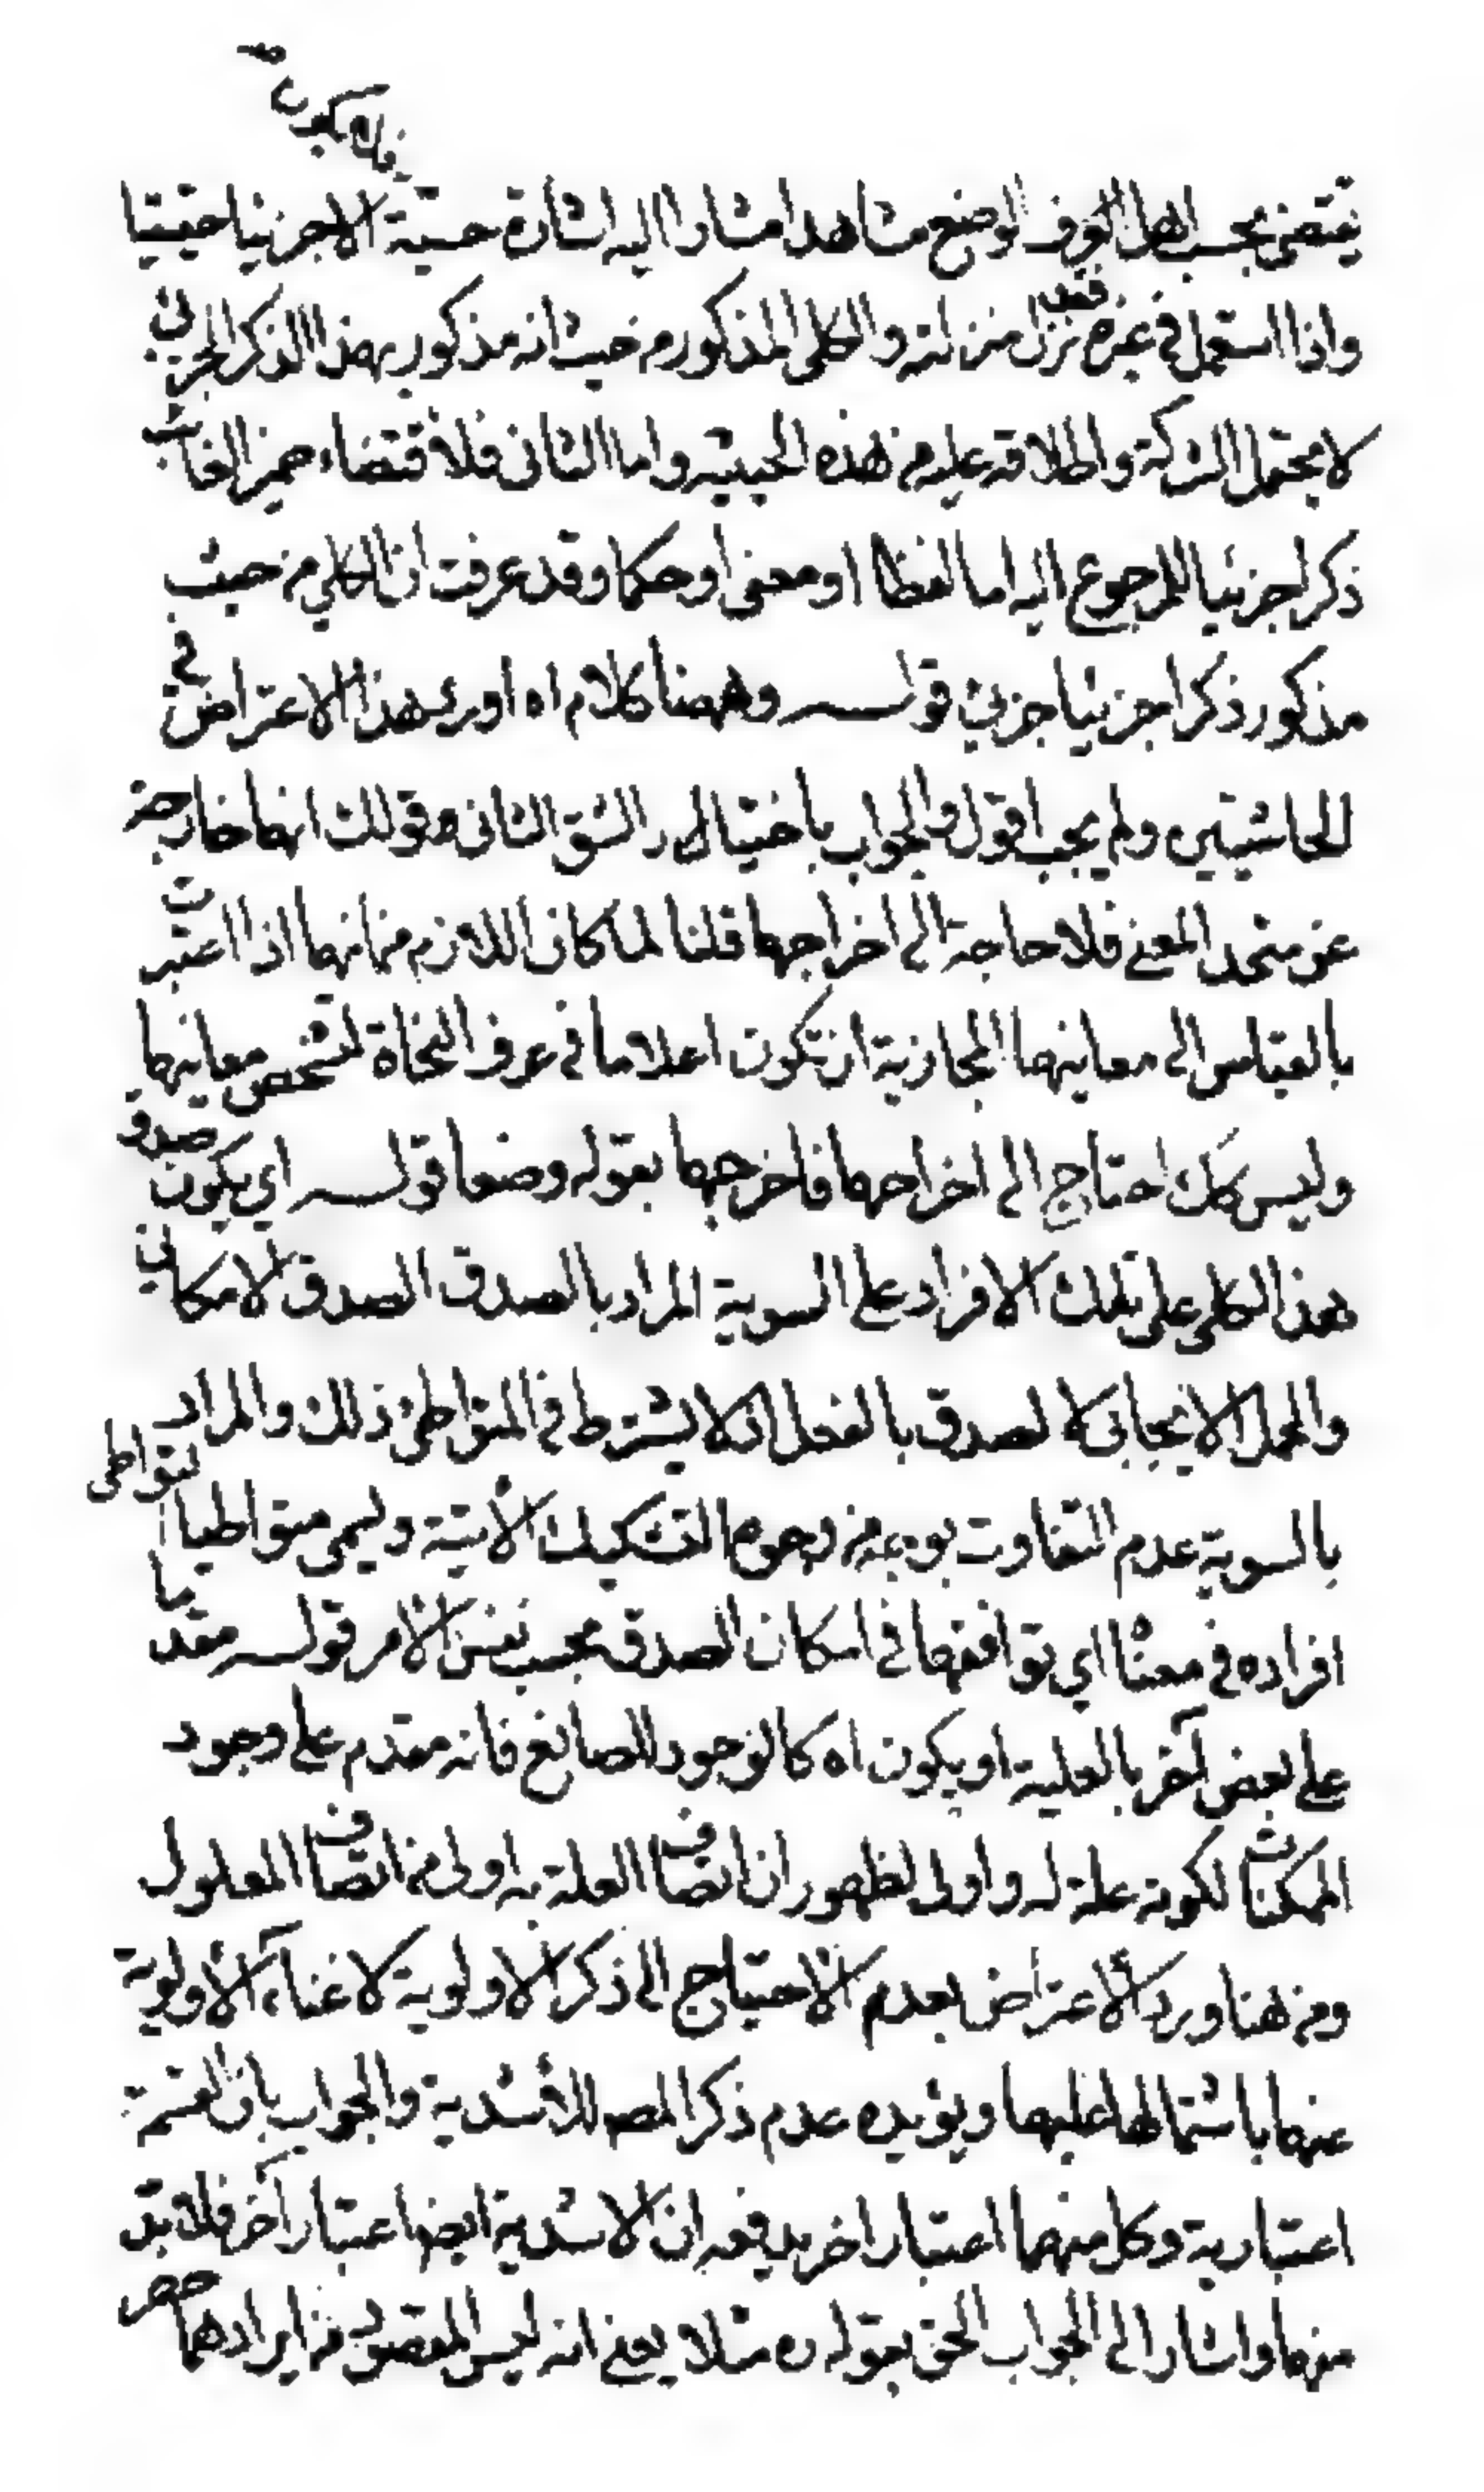 فلا يكون
يقتضى بحسب اهل العرف لوضع مشاهدا مشارا اليه اشارة حسية الا جزئيا حقيقيا
واذا استعمل في غيره فقد نزل منزلته والكلى المذكور من حيث انه مذكور بهذا الذكر الجزئى
لا يحتمل الشركة واطلاقه عليه من هذه الحيثية واما الثانى فلاقتضاء ضمير الغائب
ذكر جزئيا للمرجوع اليه اما لفظا او معنى او حكما وقد عرفت ان الكلي من حيث
مذكور ذكرا جزئيا جزئي قولـــه وههنا كلام اه اورد هذا الاعتراض في
الحاشيتين ولم يجب اقول والجواب باختيار الشق الثانى وقولك انها خارجة
عن متحد المعنى فلا حاجة الى اخراجها قلنا لما كان اللازم من انها اذا اعتبرت
بالقياس الى معانيها المجازية ان تكون اعلاما في عرف النحاة لتشخص معانيها
وليس كك احتاج الى اخراجها فاخرجها بقوله وضعا قولـــه اي يكون صدق
هذا الكلى على تلك الافراد على السوية المراد بالصدق الصدق الامكاني
والحمل الايجابى لا لصدق بالفعل اذ لا يشترط في المتواطئ ذلك والمراد
بالسوية عدم التفاوت بوجه من وجوه التشكيك الآتية ويسمى متواطيا لتواطى
افراده في معناه اي توافقها في امكان الصدق بحسب نفس الامر قولـــه مقدما
على بعض آخر بالعلية او يكون اه كالوجود للصانع فانه مقدم على وجود
الممكنات لكونه علة له واولى لظهور ان اتصاف العلة به اولى من اتصاف المعلول
ومن هنا ورد الاعتراض بعدم الاحتياج الى ذكر الاولوية لاغناء الاولوية
عنها باشتمالها عليها ويؤيده عدم ذكر المصـ للاشدية والجواب بان القسمة
اعتبارية وكل منهما اعتبار اخر يدفعه ان الاشدية ايضا اعتبار آخر فلا بد
منها واشار الى الجواب الحق بقوله ره مثلا يعنى انه ليس المقصود من ايرادهما حصر